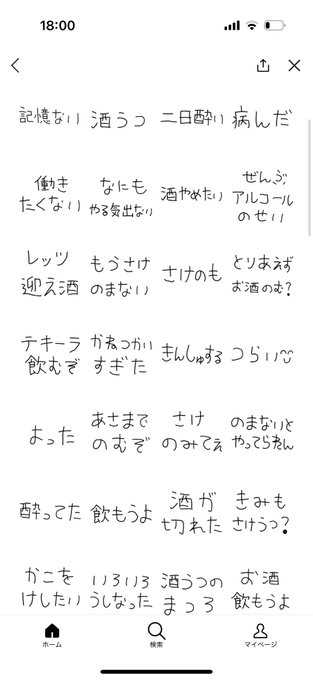 18:00
記憶ない 酒うつ 二日酔い 病んだ
働き なにも 酒やめたい ぜんぶ
たくない やる気出ない アルコール
のせい
レッツ もうさけ さけのも とりあえず
迎え酒 のまない お酒のむ?
テキーラ かねつかい きんしゅする つらい
飲むぞ すぎた
よった あさまで さけ のまないと
のむぞ のみてぇ やってられん
酔ってた 飲もうよ 酒が きみも
切れた さけうつ?
かこを いろいろ 酒うつの お酒
けしたい うしなった まつろ 飲もうよ
ホーム 検索 マイページ